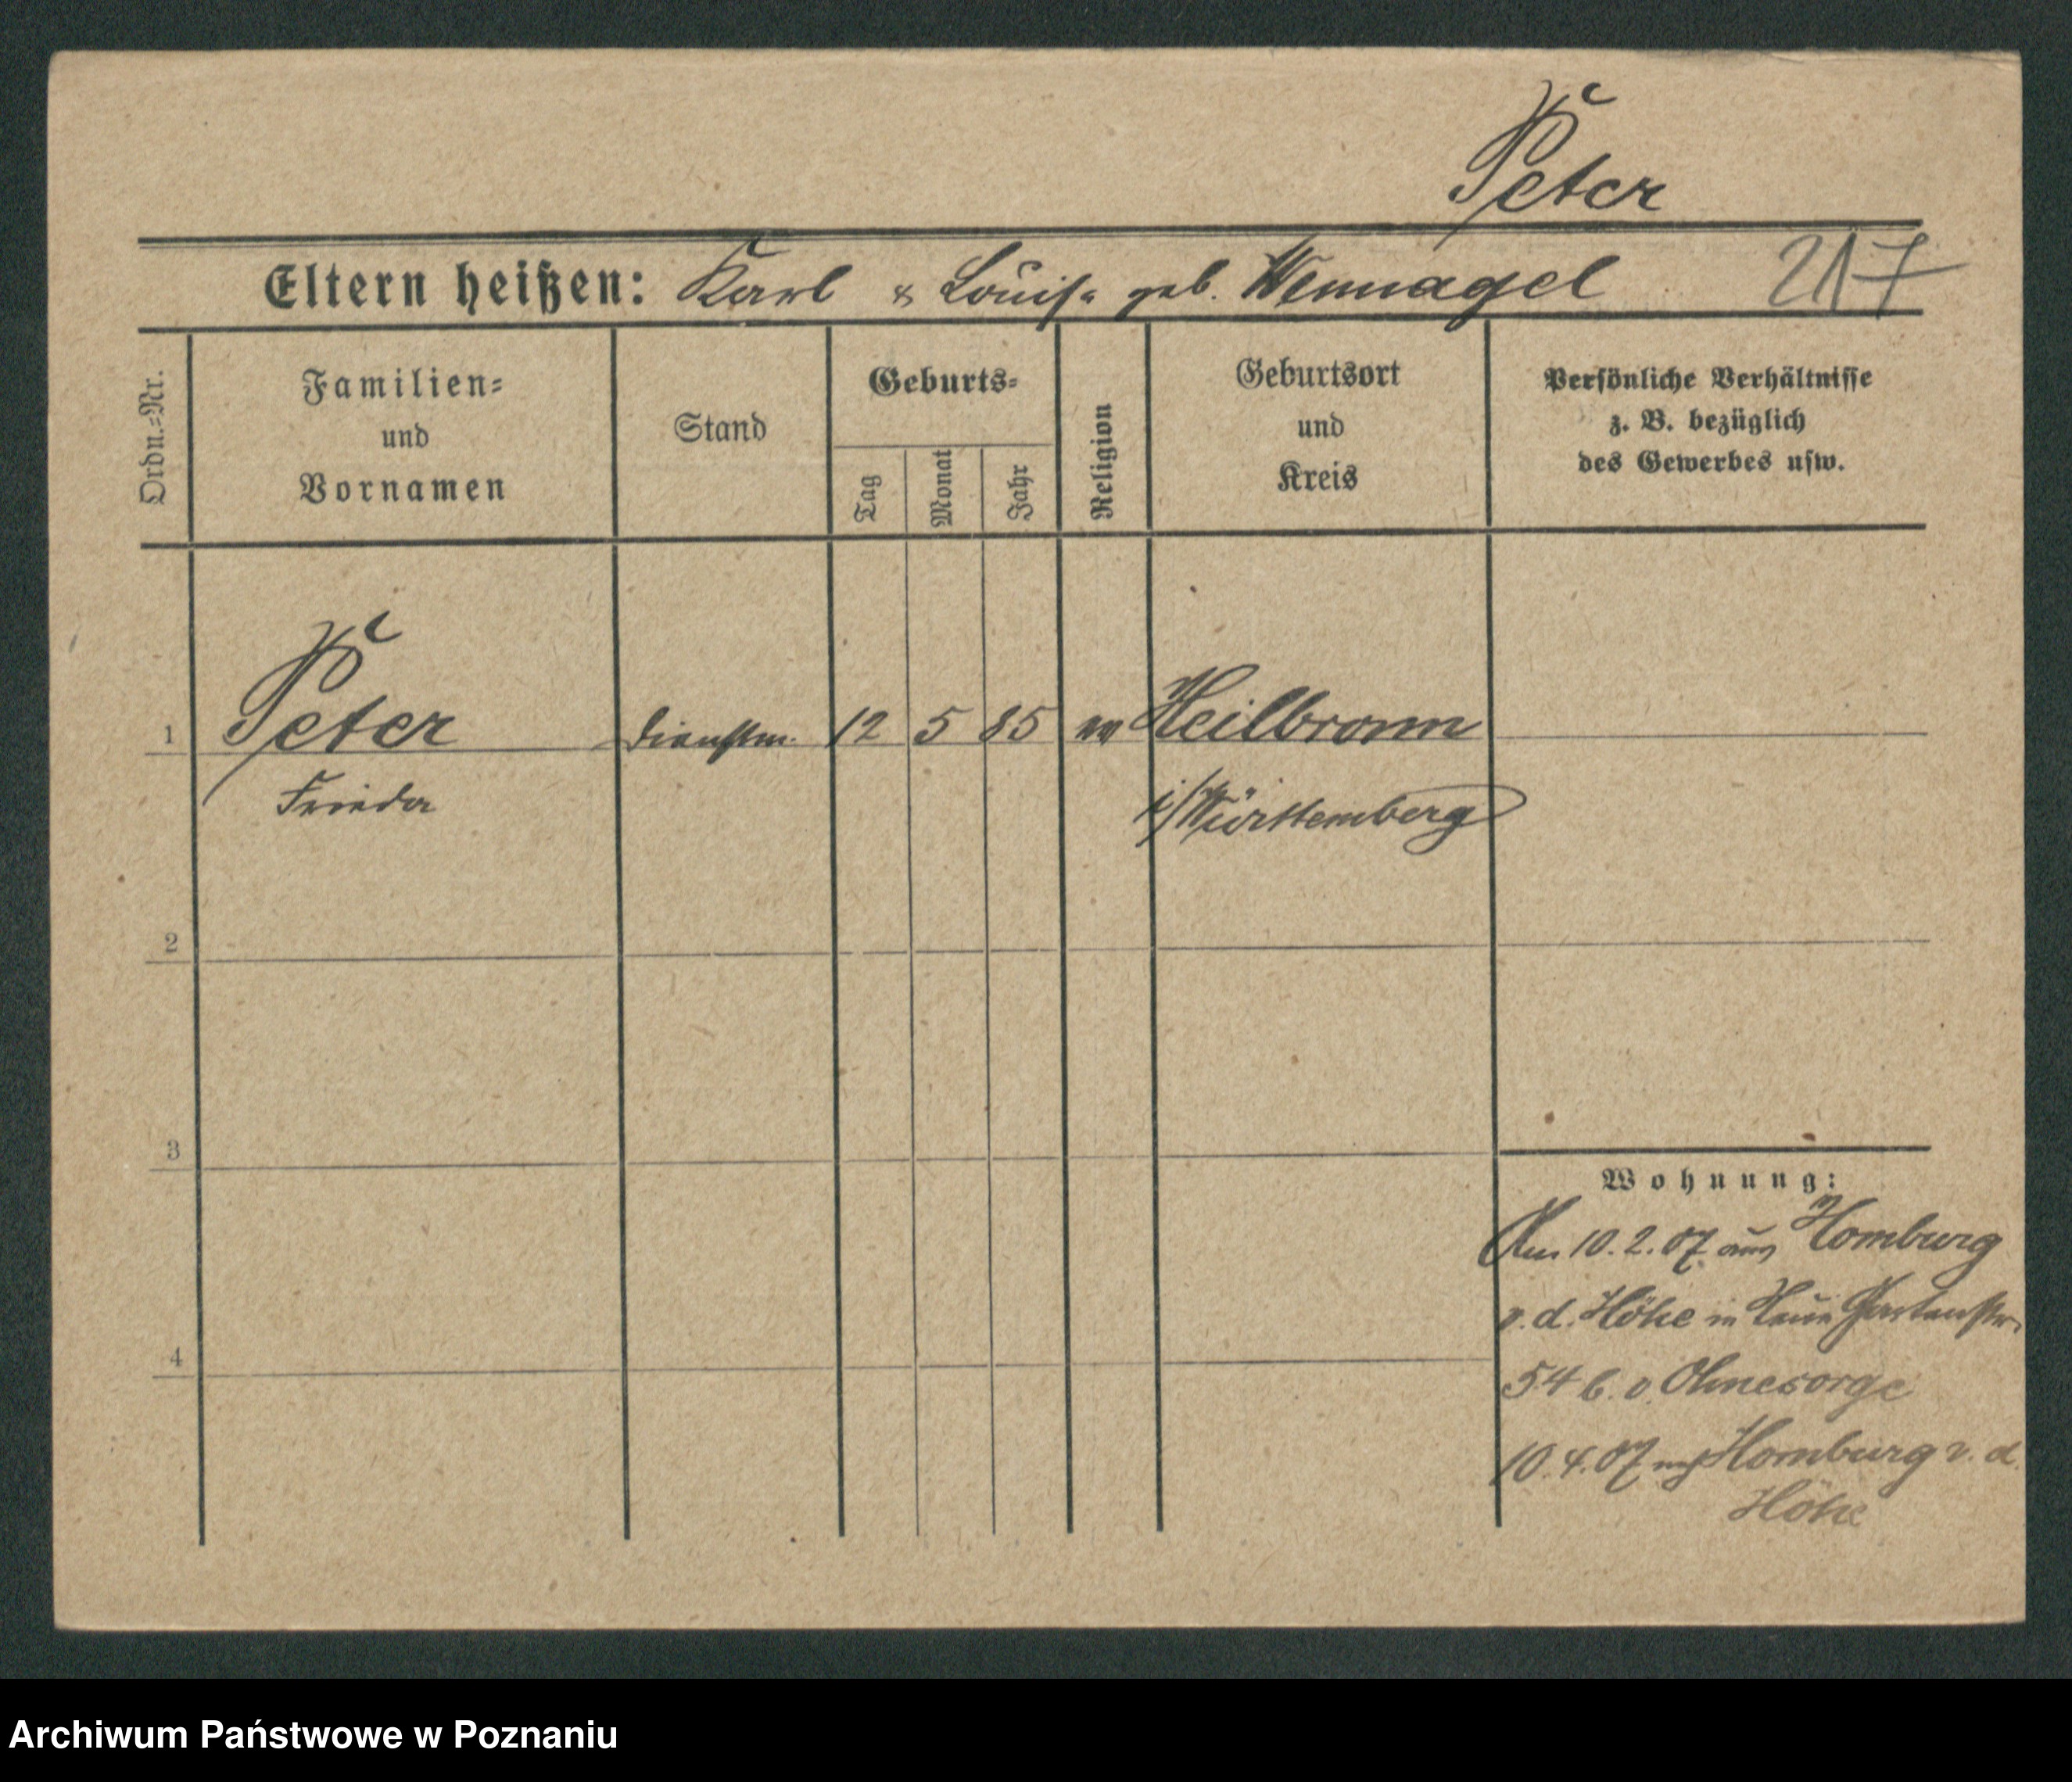 Peter
Eltern heißen: Karl & Louise geb. Wennagel 217
Ordn.=Nr.
Familien=
und
Vornamen
Stand
Geburts=
Tag
Monat
Jahr
Religion
Geburtsort
und
Kreis
Persönliche Verhältnisse
z. B. bezüglich
des Gewerbes usw.
1 Peter Dienstm. 12 5 85 ev Heilbronn
Frieda i/Württemberg
2
3
4
Wohnung:
Am 10.2.07 aus Homburg
v. d. Höhe in Neue Gartenstr.
54 b. v. Ohnesorge
10.4.07 nach Homburg v. d.
Höhe
Archiwum Państwowe w Poznaniu